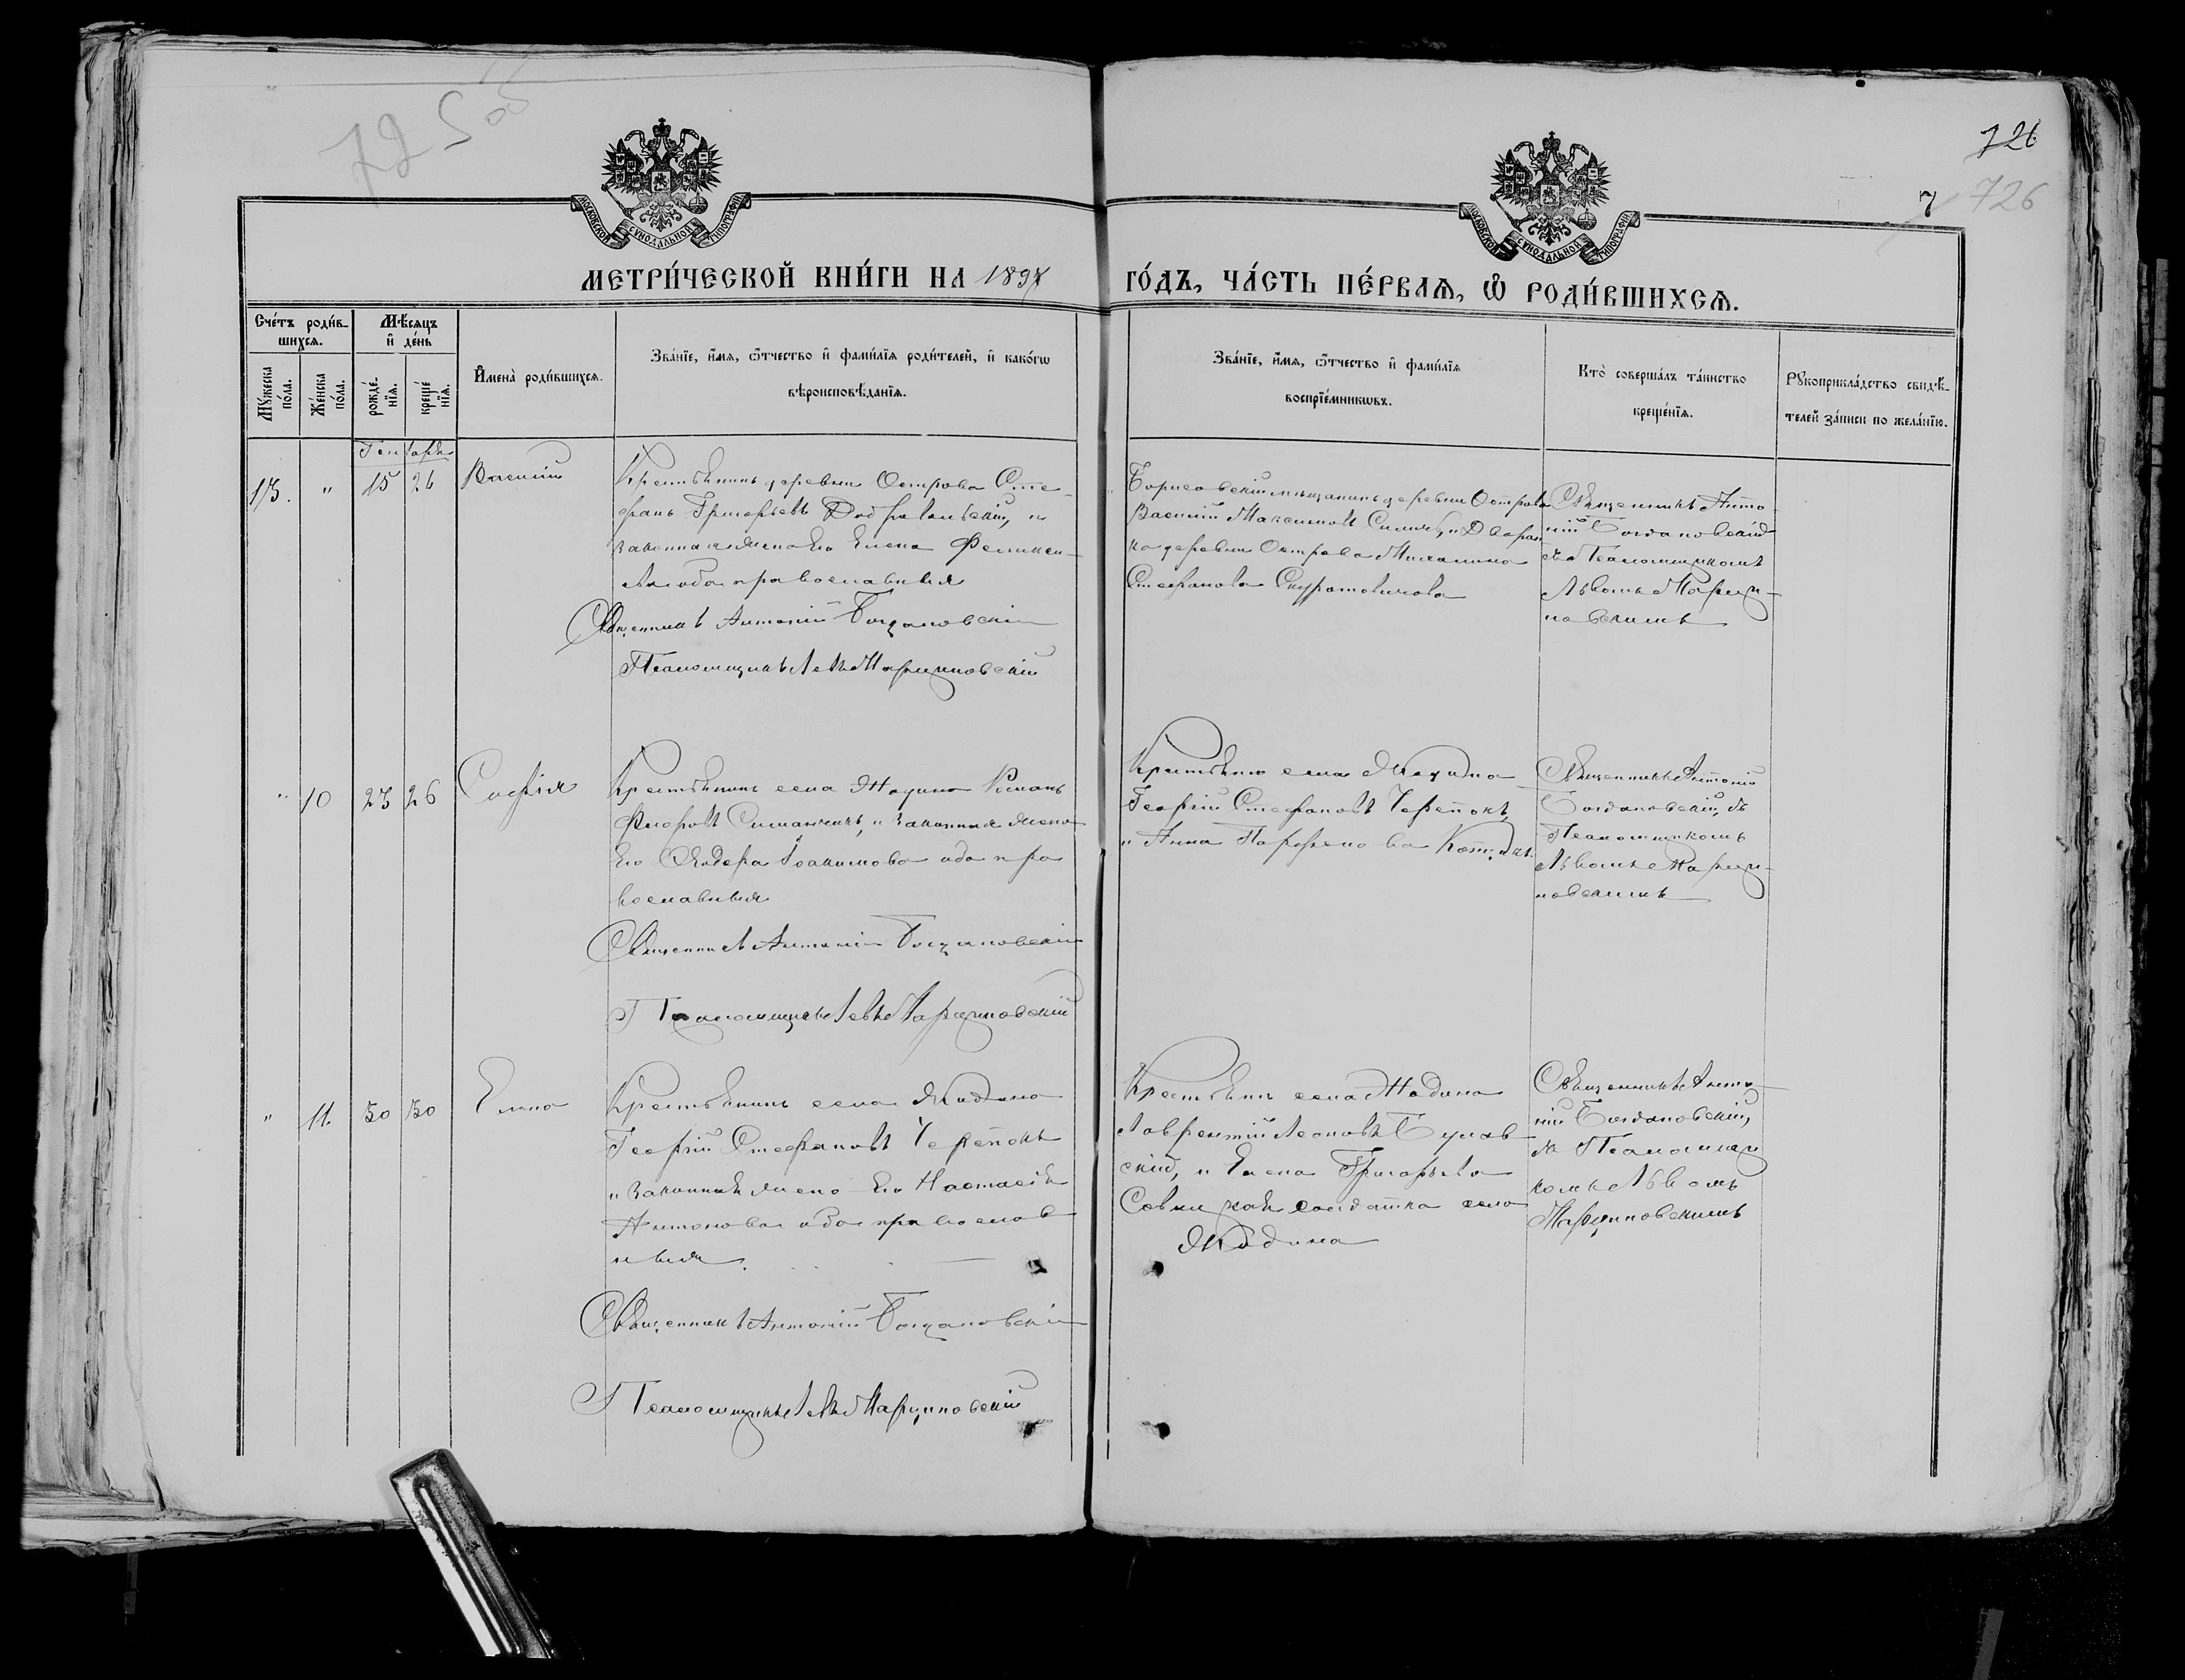 725 об
726
7 726
МОСКОВСКОЙ СѴНОДАЛЬНОЙ ТИПОГРАФІИ
МОСКОВСКОЙ СѴНОДАЛЬНОЙ ТИПОГРАФІИ
МЕТРИ́ЧЕСКОЙ КНИ́ГИ НА 1897 ГО́ДЪ, ЧА́СТЬ ПЕ́РВАѦ, Ѡ҆ РОДИ́ВШИХСѦ.
Сче́тъ роди́в-
шихсѧ.
Мѣ́сяцъ
и҆ де́нь
Мꙋ́жеска
по́ла.
Же́нска
по́ла.
рожде́-
нїѧ.
креще́
нїѧ.
И҆мена̀ роди́вшихсѧ.
Зва́нїе, и҆́мѧ, ѻ҆́тчество и҆ фами́лїѧ роди́телей, и҆ како́гѡ
вѣроисповѣ́данїѧ.
Зва́нїе, и҆́мѧ, ѻ҆́тчество и҆ фами́лїѧ
воспрїе́мникѡвъ.
Кто̀ соверша́лъ та́инство
креще́нїѧ.
Рꙋкоприкла́дство свидѣ́-
телей за́писи по жела́нїю.
Генваря
13. " 15 26 Василій
Крестьянинъ деревни Острова Сте-
фанъ Григорьевъ и
законная жена его Елена Феликсо-
ва оба православныя
Священникъ Антоній Богдановскій
Псаломщикъ Левъ Марциновскій
Борисовскій мѣщанинъ деревни Острова
Василій Максимовъ и Дворян
ка деревни Острова Михалина
Стефанова Скуратовичова
Священникъ Анто-
ній Богдановскій
съ Псаломщикомъ
Львомъ Марци-
новскимъ
" 10 23 26 Софія
Крестьянинъ села Жодина Романъ
Симанчикъ, и законная жена
его Іоакимова оба пра
вославныя
Священникъ Антоній Богдановскій
Псаломщикъ Левъ Марциновскій
Крестьяне села Жодина
Георгій Стефановъ Черепокъ,
и Анна Парфенова
Священникъ Антоній
Богдановскій, съ
Псаломщикомъ
Львомъ Марци-
новскимъ
" 11. 30 30 Елена
Крестьянинъ села Жодина
Георгій Стефановъ Черепокъ
и законная жена его Настасія
Антонова оба православ
ныя.
Священникъ Антоній Богдановскій
Псаломщикъ Левъ Марциновскій
Крестьян. села Жодина
Лаврентій Леоновъ
скій, и Елена Григорьева
солдатка села
Жодина
Священникъ Анто-
ній Богдановскій,
съ Псаломщи
комъ Львомъ
Марциновскимъ